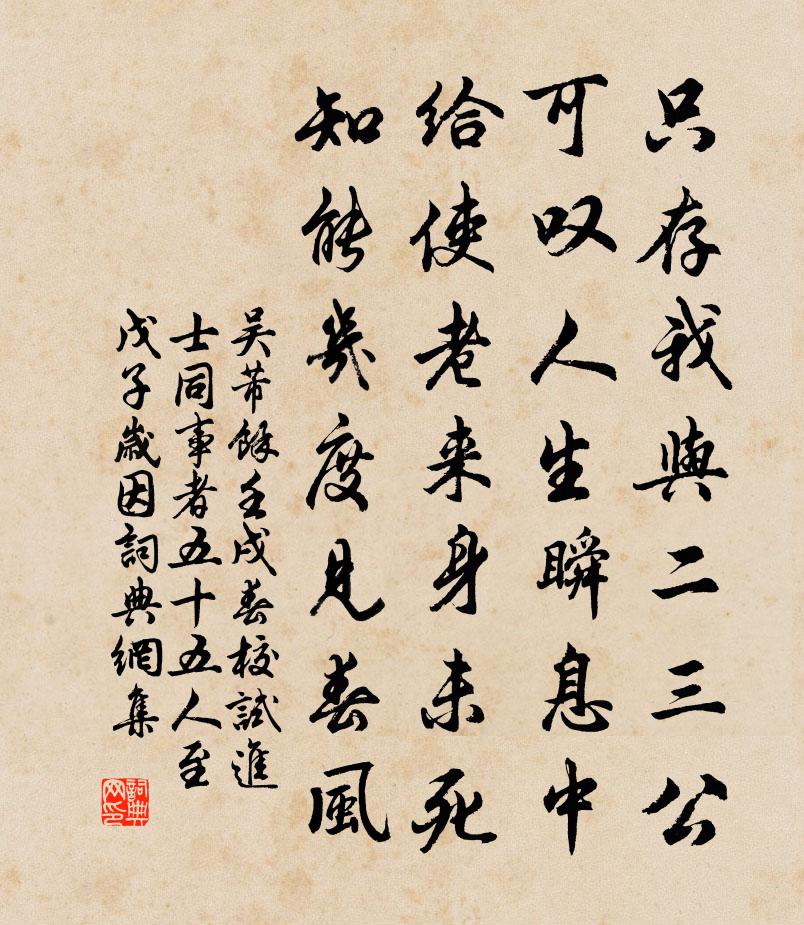 只存我與二三公
可叹人生瞬息中
給使老来身未死
知能幾度見春風
吴芾餘壬戌春校試進
士同事者五十五人至
戊子歲因詞典網集
詞典网印